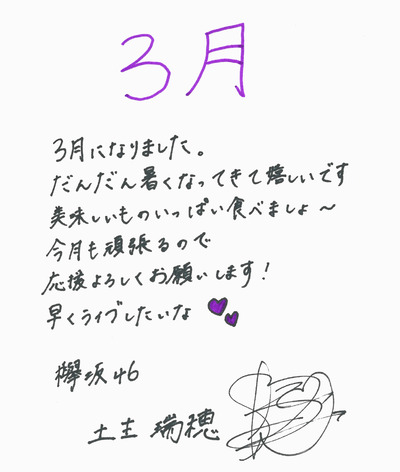 3月
3月になりました。
だんだん暑くなってきて嬉しいです
美味しいものいっぱい食べましょ〜
今月も頑張るので
応援よろしくお願いします!
早くライブしたいな
欅坂46
土生 瑞穂